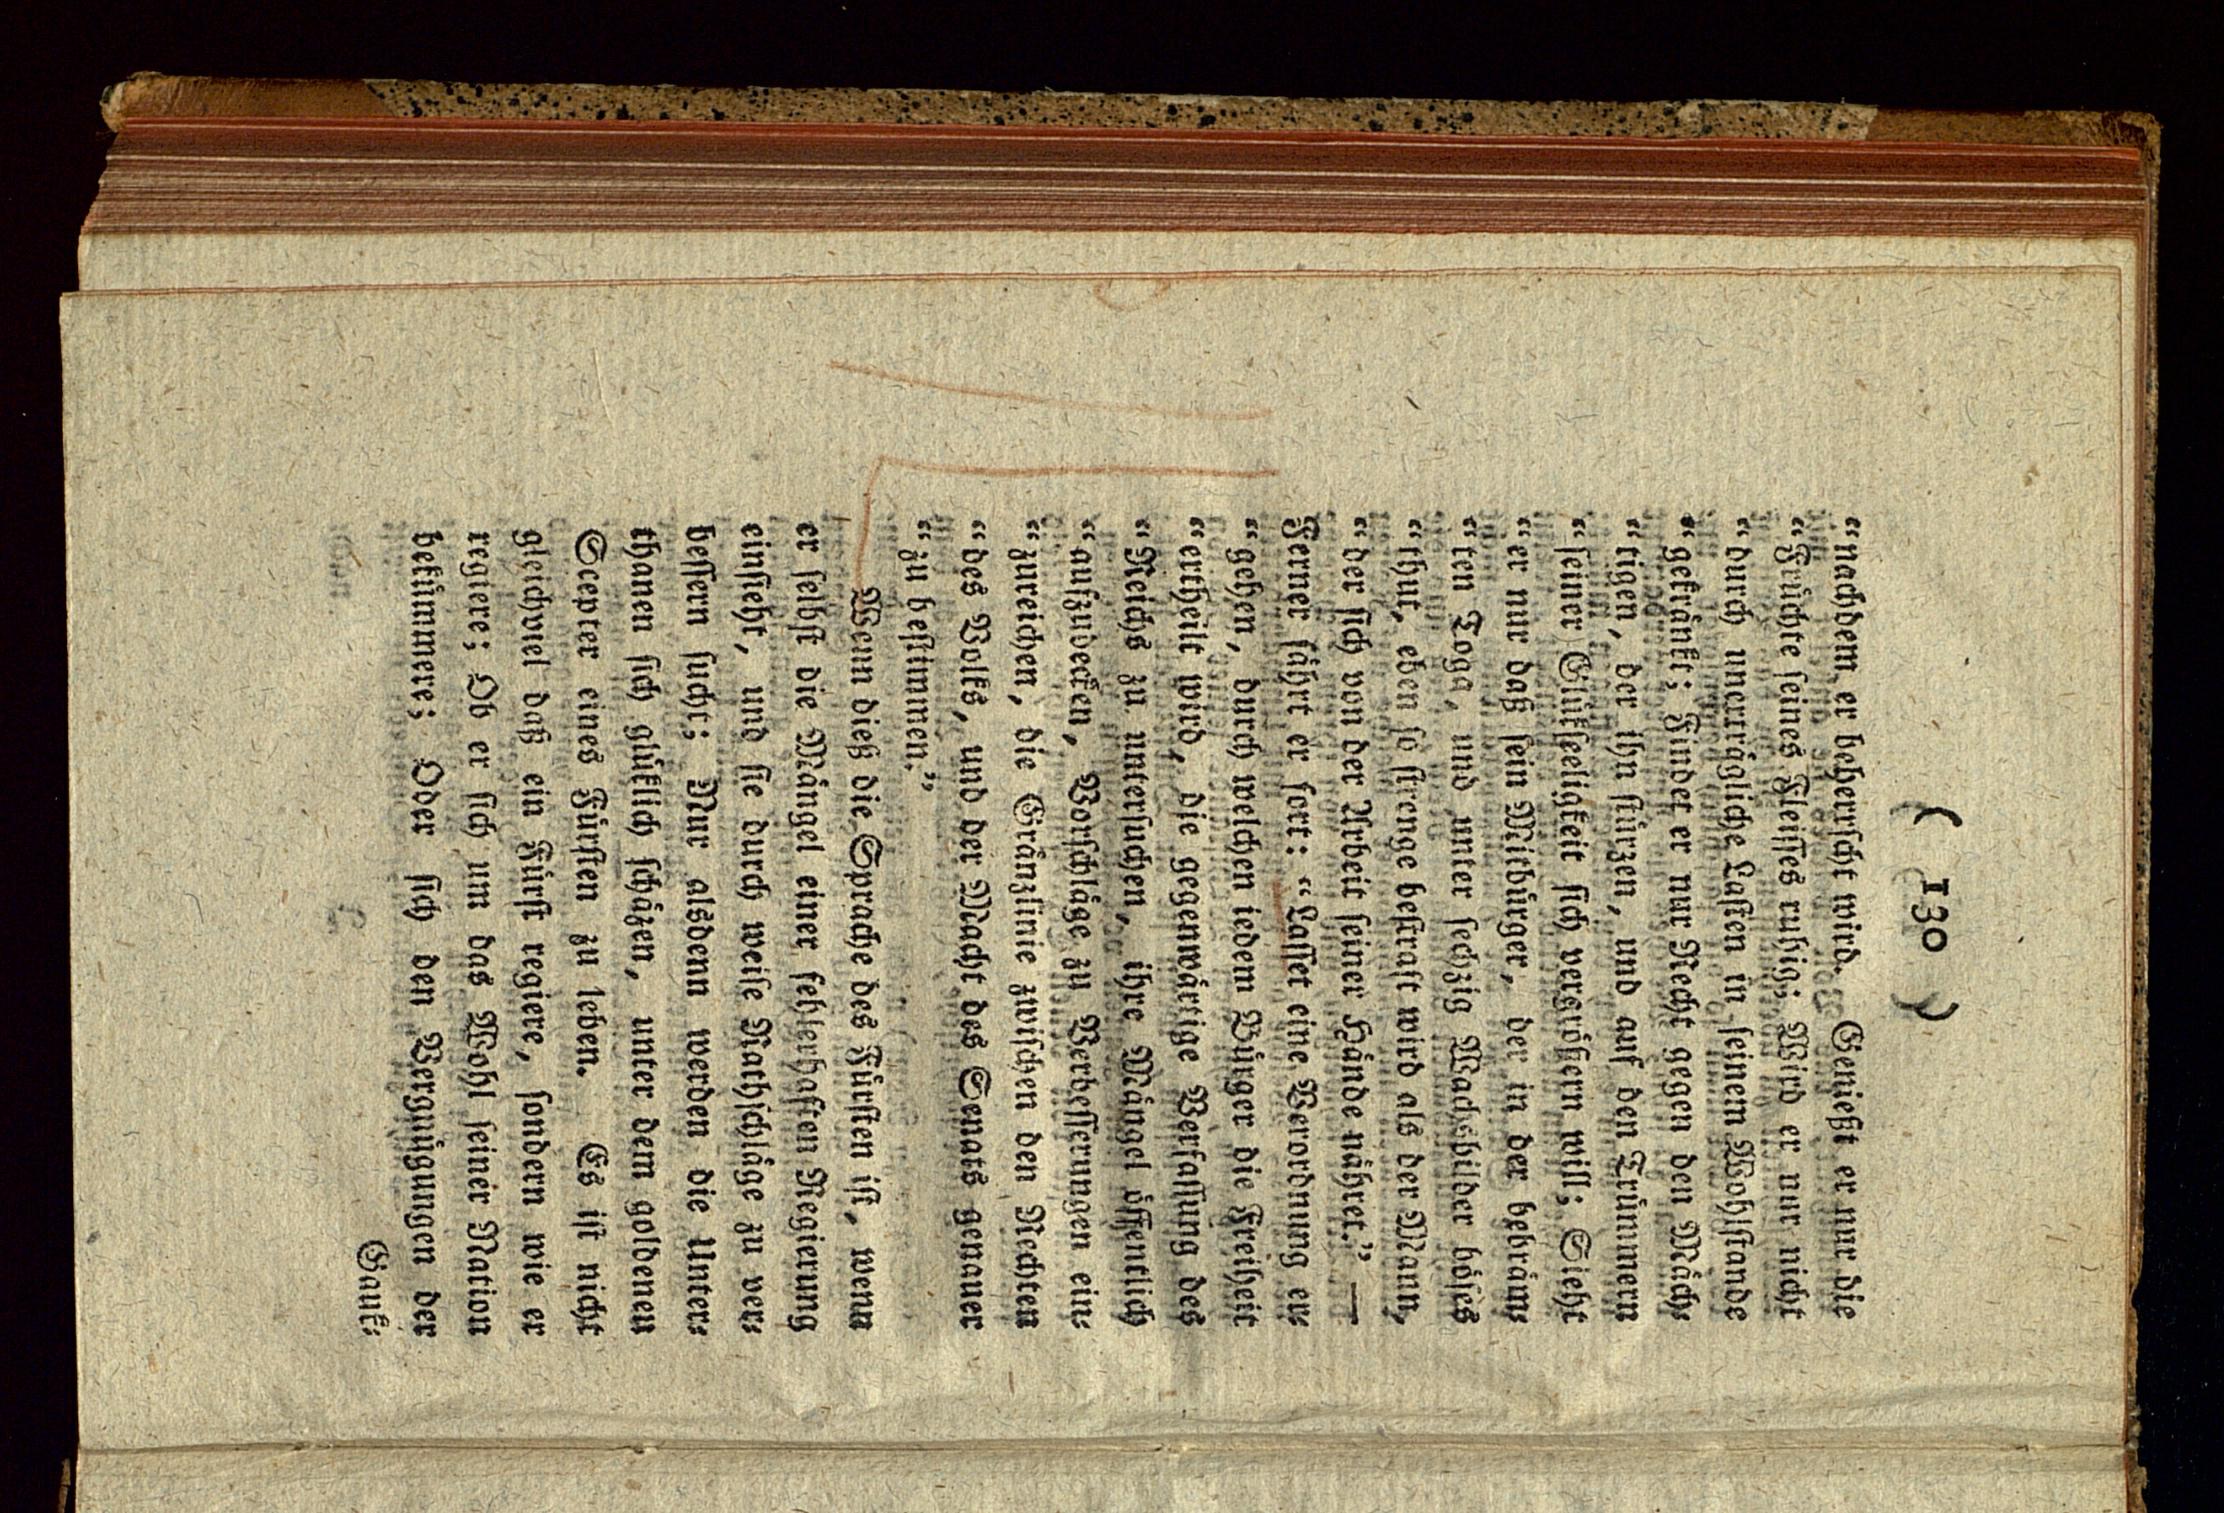 ( 130 )
“nachdem er beherrscht wird. Genießt er nur die
“Früchte seines Fleisses ruhig; Wird er nur nicht
“durch unerträgliche Lasten in seinem Wohlstande
“gekränkt; Findet er nur Recht gegen den Mäch⸗
“tigen, der ihn stürzen, und auf den Trümmern
“seiner Glükseligkeit sich vergrößern will; Sieht
“er nur daß sein Mitbürger, der in der bebräm⸗
“ten Toga, und unter sechzig Wachsbilder böses
“thut, eben so strenge bestraft wird als der Mann,
“der sich von der Arbeit seiner Hände nähret.” —
Ferner fährt er fort: “Lasset eine Verordnung er⸗
“gehen, durch welchen iedem Bürger die Freiheit
“ertheilt wird, die gegenwärtige Verfassung des
“Reichs zu untersuchen, ihre Mängel öffentlich
“aufzudecken, Vorschläge zu Verbesserungen ein⸗
“zureichen, die Gränzlinie zwischen den Rechten
“des Volks, und der Macht des Senats genauer
“zu bestimmen.”
Wenn dieß die Sprache des Fürsten ist, wenn
er selbst die Mängel einer fehlerhaften Regierung
einsieht, und sie durch weise Rathschläge zu ver⸗
bessern sucht; Nur alsdenn werden die Unter⸗
thanen sich glüklich schäzen, unter dem goldenen
Scepter eines Fürsten zu leben. Es ist nicht
gleichviel daß ein Fürst regiere, sondern wie er
regiere; Ob er sich um das Wohl seiner Nation
bekümmere; Oder sich den Vergnügungen der
Gauk⸗